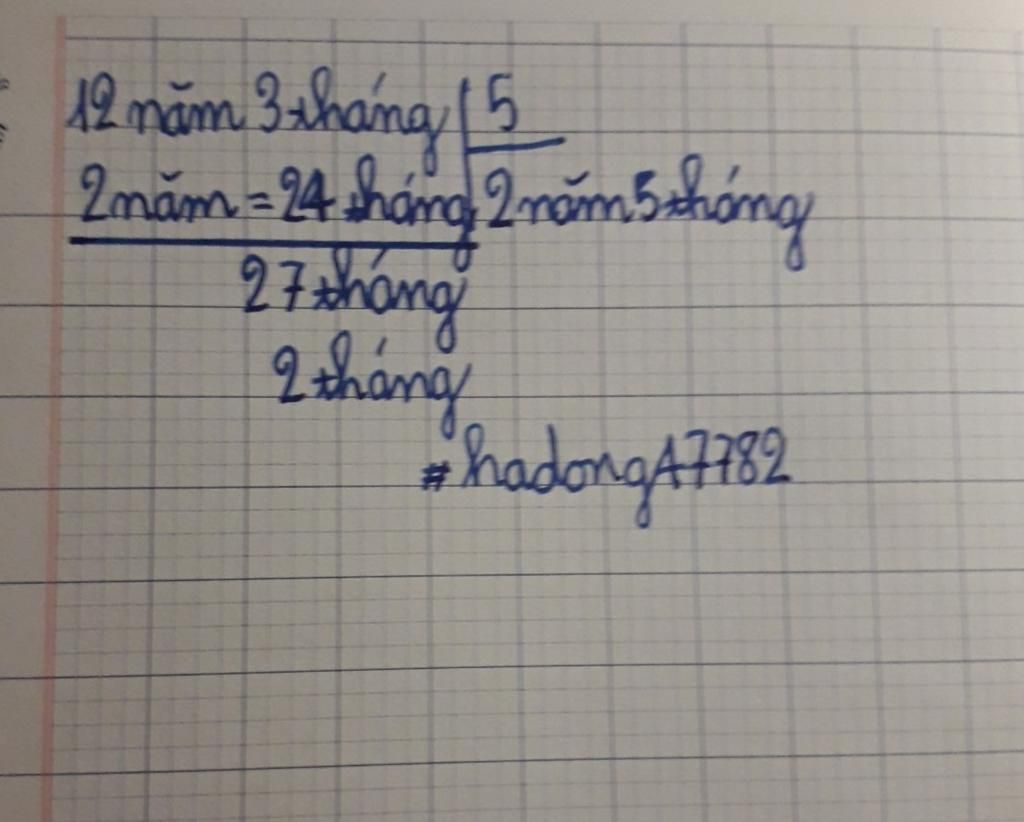 12 năm 3 tháng 5
2 năm = 24 tháng 2 năm 5 tháng
27 tháng
2 tháng
#hadongA7782